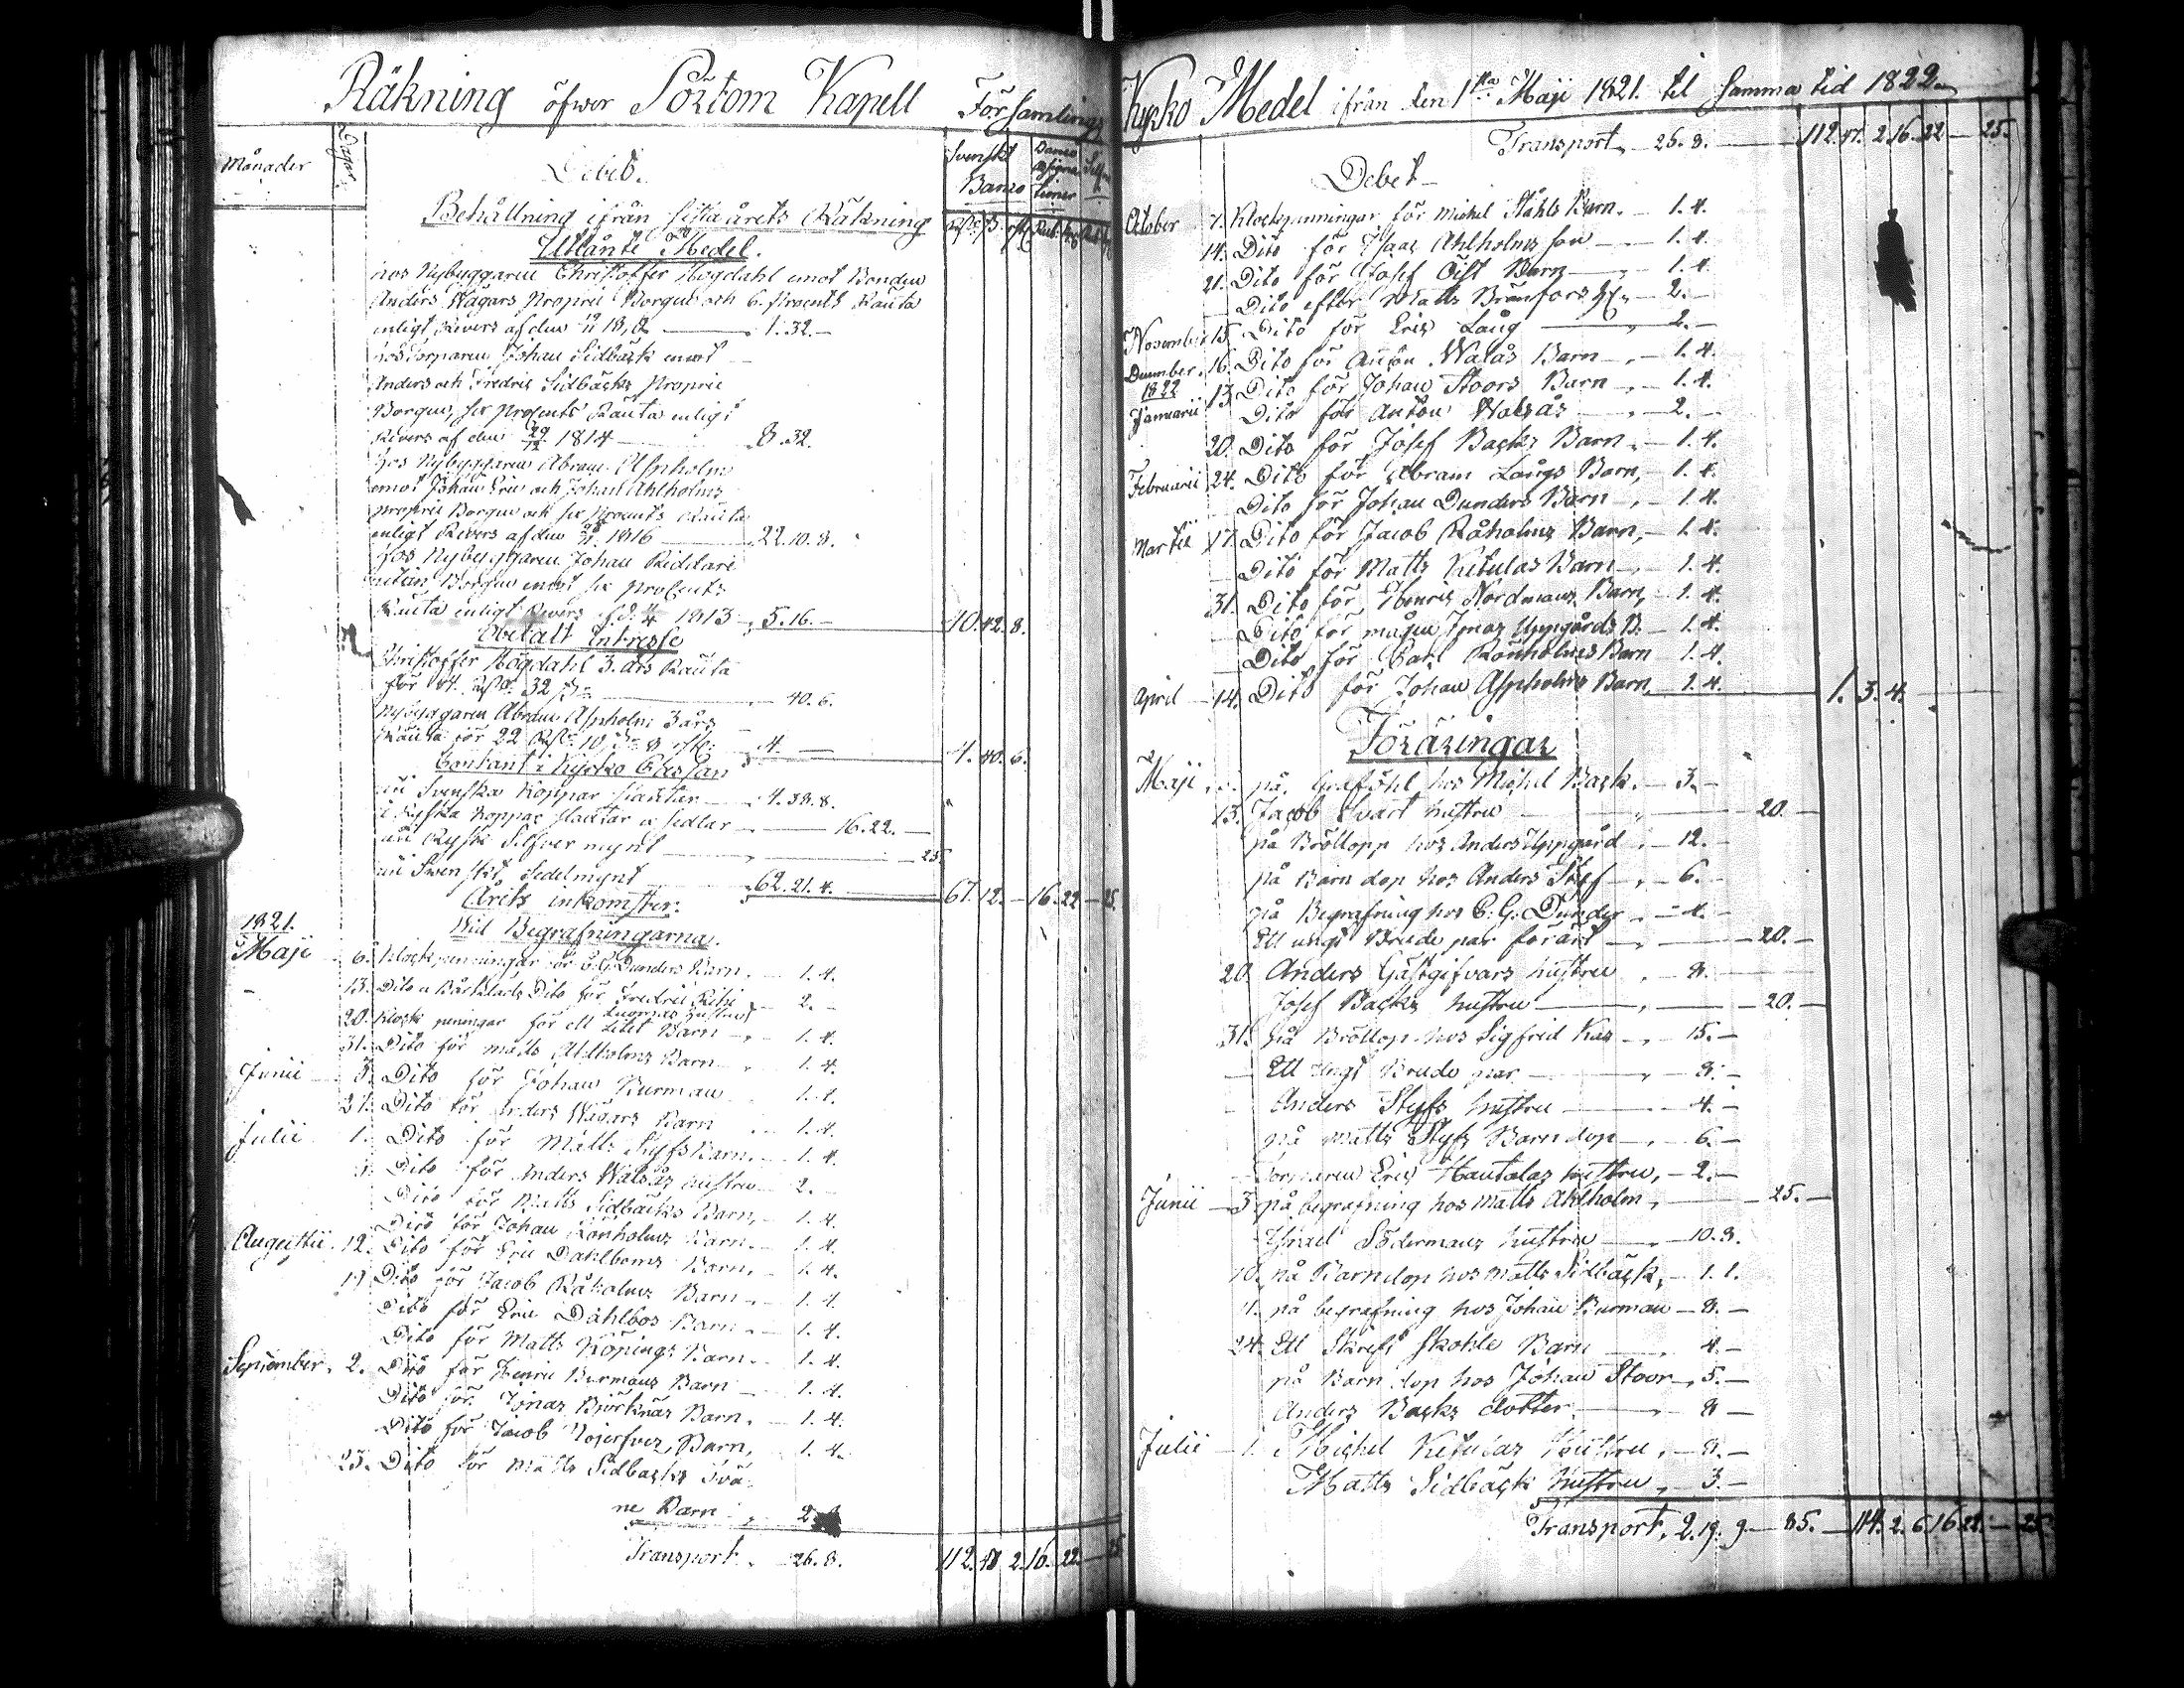 Räkning öfwer Pörtom Kapell Församlings
Månader
Dagar
Debet.
Svenskt Banco
Banco Assigna tioner
Behållning ifrån sista årets Räkning
Utlånte Medel.
hos Nybyggaren Christoffer Högdahl emot Bonden
Anders Wägars Proprie Borgen och 6. procents Ränta
enligt Revers af den 1.32.
hos Torparen Johan Sidbäck emot
Anders och Fredric Sidbäcks Proprie
Borgen, sex procents Ränta enligt
Revers af den 29/12 1814 8.32.
hos Nybyggaren Abram Aspholm
emot Johan Eric och Johan Ahlholms
proprie Borgen och sex procents Ränta
enligt Revers af den 1816 22.10.8.
hos Nybyggaren Johan Riddare
utan Borgen emot sex procents
Ränta enligt Revers 1813 5.16.— 40.42.8.
Obetalt Intresse
Christoffer Högdahl 3. års Ränta
för 32 — 40.6.
Nybyggaren Abram Aspholm 3 års
Ränta för 22 10 8 4.— 4.40.6.
Contant i Kyrko Cassan
uti Svenska koppar slantar 4.38.8.
i Ryska koppar slantar o sedlar 16.22.—
uti Rysk Silfver mynt 25.
uti Swenskt Sedelmynt 62.21.4. 67.12.—16.22—25.
Årets inkomster.
Wid Begrafningarna.
1821.
Maji 6. Klockpenningar för C. G. Dunders Barn. 1.4.
13. Dito o Bårklads Dito för Fredric 2.—
20. Klock peningar för ett Litet Barn 1.4.
31. Dito för Matts Ahlholms Barn 1.4.
Junii 3. Dito för Johan Burman 1.4.
21. Dito för Anders Wägars Barn 1.4.
Julii 1. Dito för Matts Styfs Barn. 1.4.
Dito för Anders Walsås hustru 2.
Dito för Matts Sidbäcks Barn, 1.4.
Dito för Johan Rönholms Barn. 1.4.
Augustii. 12. Dito för Eric Dahlboms Barn. 1.4.
19 Dito för Jacob Råholms Barn 1.4.
Dito för Eric Dahlbos Barn 1.4.
Dito för Matts Köpings Barn. 1.4.
September. 2. Dito för Henric Burmans Barn 1.4.
Dito för Jonas Björknäs Barn. 1.4.
Dito för Jacob Barn, 1.4.
23. Dito för Matts Sidbäcks Tvä-
ne Barn 2.8
Transport. 26.8. 112.47 2.16.22—25
Kyrko Medel ifrån den 1sta Maji 1821. til Samma tid 1822.
Transport 26.8. 112.47. 2.16.22—25.
Debet
October 7. Klockpenningar för Michel Ståhls Barn. 1.4.
14. Dito för Isaac Ahlholms son 1.4.
21. Dito för Josef Öist Barn 1.4.
Dito efter Matts Brunfors 2.—
November 15. Dito för Eric Lång 2.—
December. 16. Dito för Anton Walsås Barn 1.4.
1822
Januarii 13. Dito för Johan Stoors Barn 1.4.
Dito för Anton Walsås 2.—
20. Dito för Josef Backs Barn. 1.4.
Februarii 24. Dito för Abram Långs Barn, 1.4.
Dito för Johan Dunders Barn 1.4.
Martii 17. Dito för Jacob Råholms Barn, 1.4.
Dito för Matts Ketulas Barn 1.4.
31. Dito för Henric Nordmans Barn, 1.4.
Dito för mågen Jonas Uppgårds B. 1.4.
Dito för Carl Rönholms Barn 1.4.
April 14. Dito för Johan Aspholms Barn 1.4. 1.3.4.
Föräringar
Maji på Graföhl hos Michel Back. 3.—
13. Jacob Svart hustru 20.—
på Bröllopp hos Anders Uppgård 12.—
på Barn dop hos Anders Styf 6.—
på Begrafning hos C. G. Dunder 4.—
Ett ungt Brude par förärt 20.—
20. Anders Gästgifvars hustru 8.
Josef Backs hustru 20.—
31. på Bröllop hos Sigfrid Kas 15.—
Ett ungt Brude par 8.—
Anders Styfs hustru 4.—
på Matts Styfs Barndop 6.—
Torparen Eric Hautalas hustru, 2.—
Junii 3. på begrafning hos Matts Ahlholm 25.—
Israel Södermans hustru 10.8.
10. på Barndop hos Matts Sidbäck, 1.1.
på begrafning hos Johan Burman 8.—
24. Ett Skrift skohls Barn 4.—
på Barn dop hos Johan Stoor 5.—
Anders Backs dotter 8—
Julii 1. Michel Ketulas hustru, 8.—
Matts Sidbäcks hustru, 3.—
Transport, 2.19.9—85.—114.2.6.16.22.—25